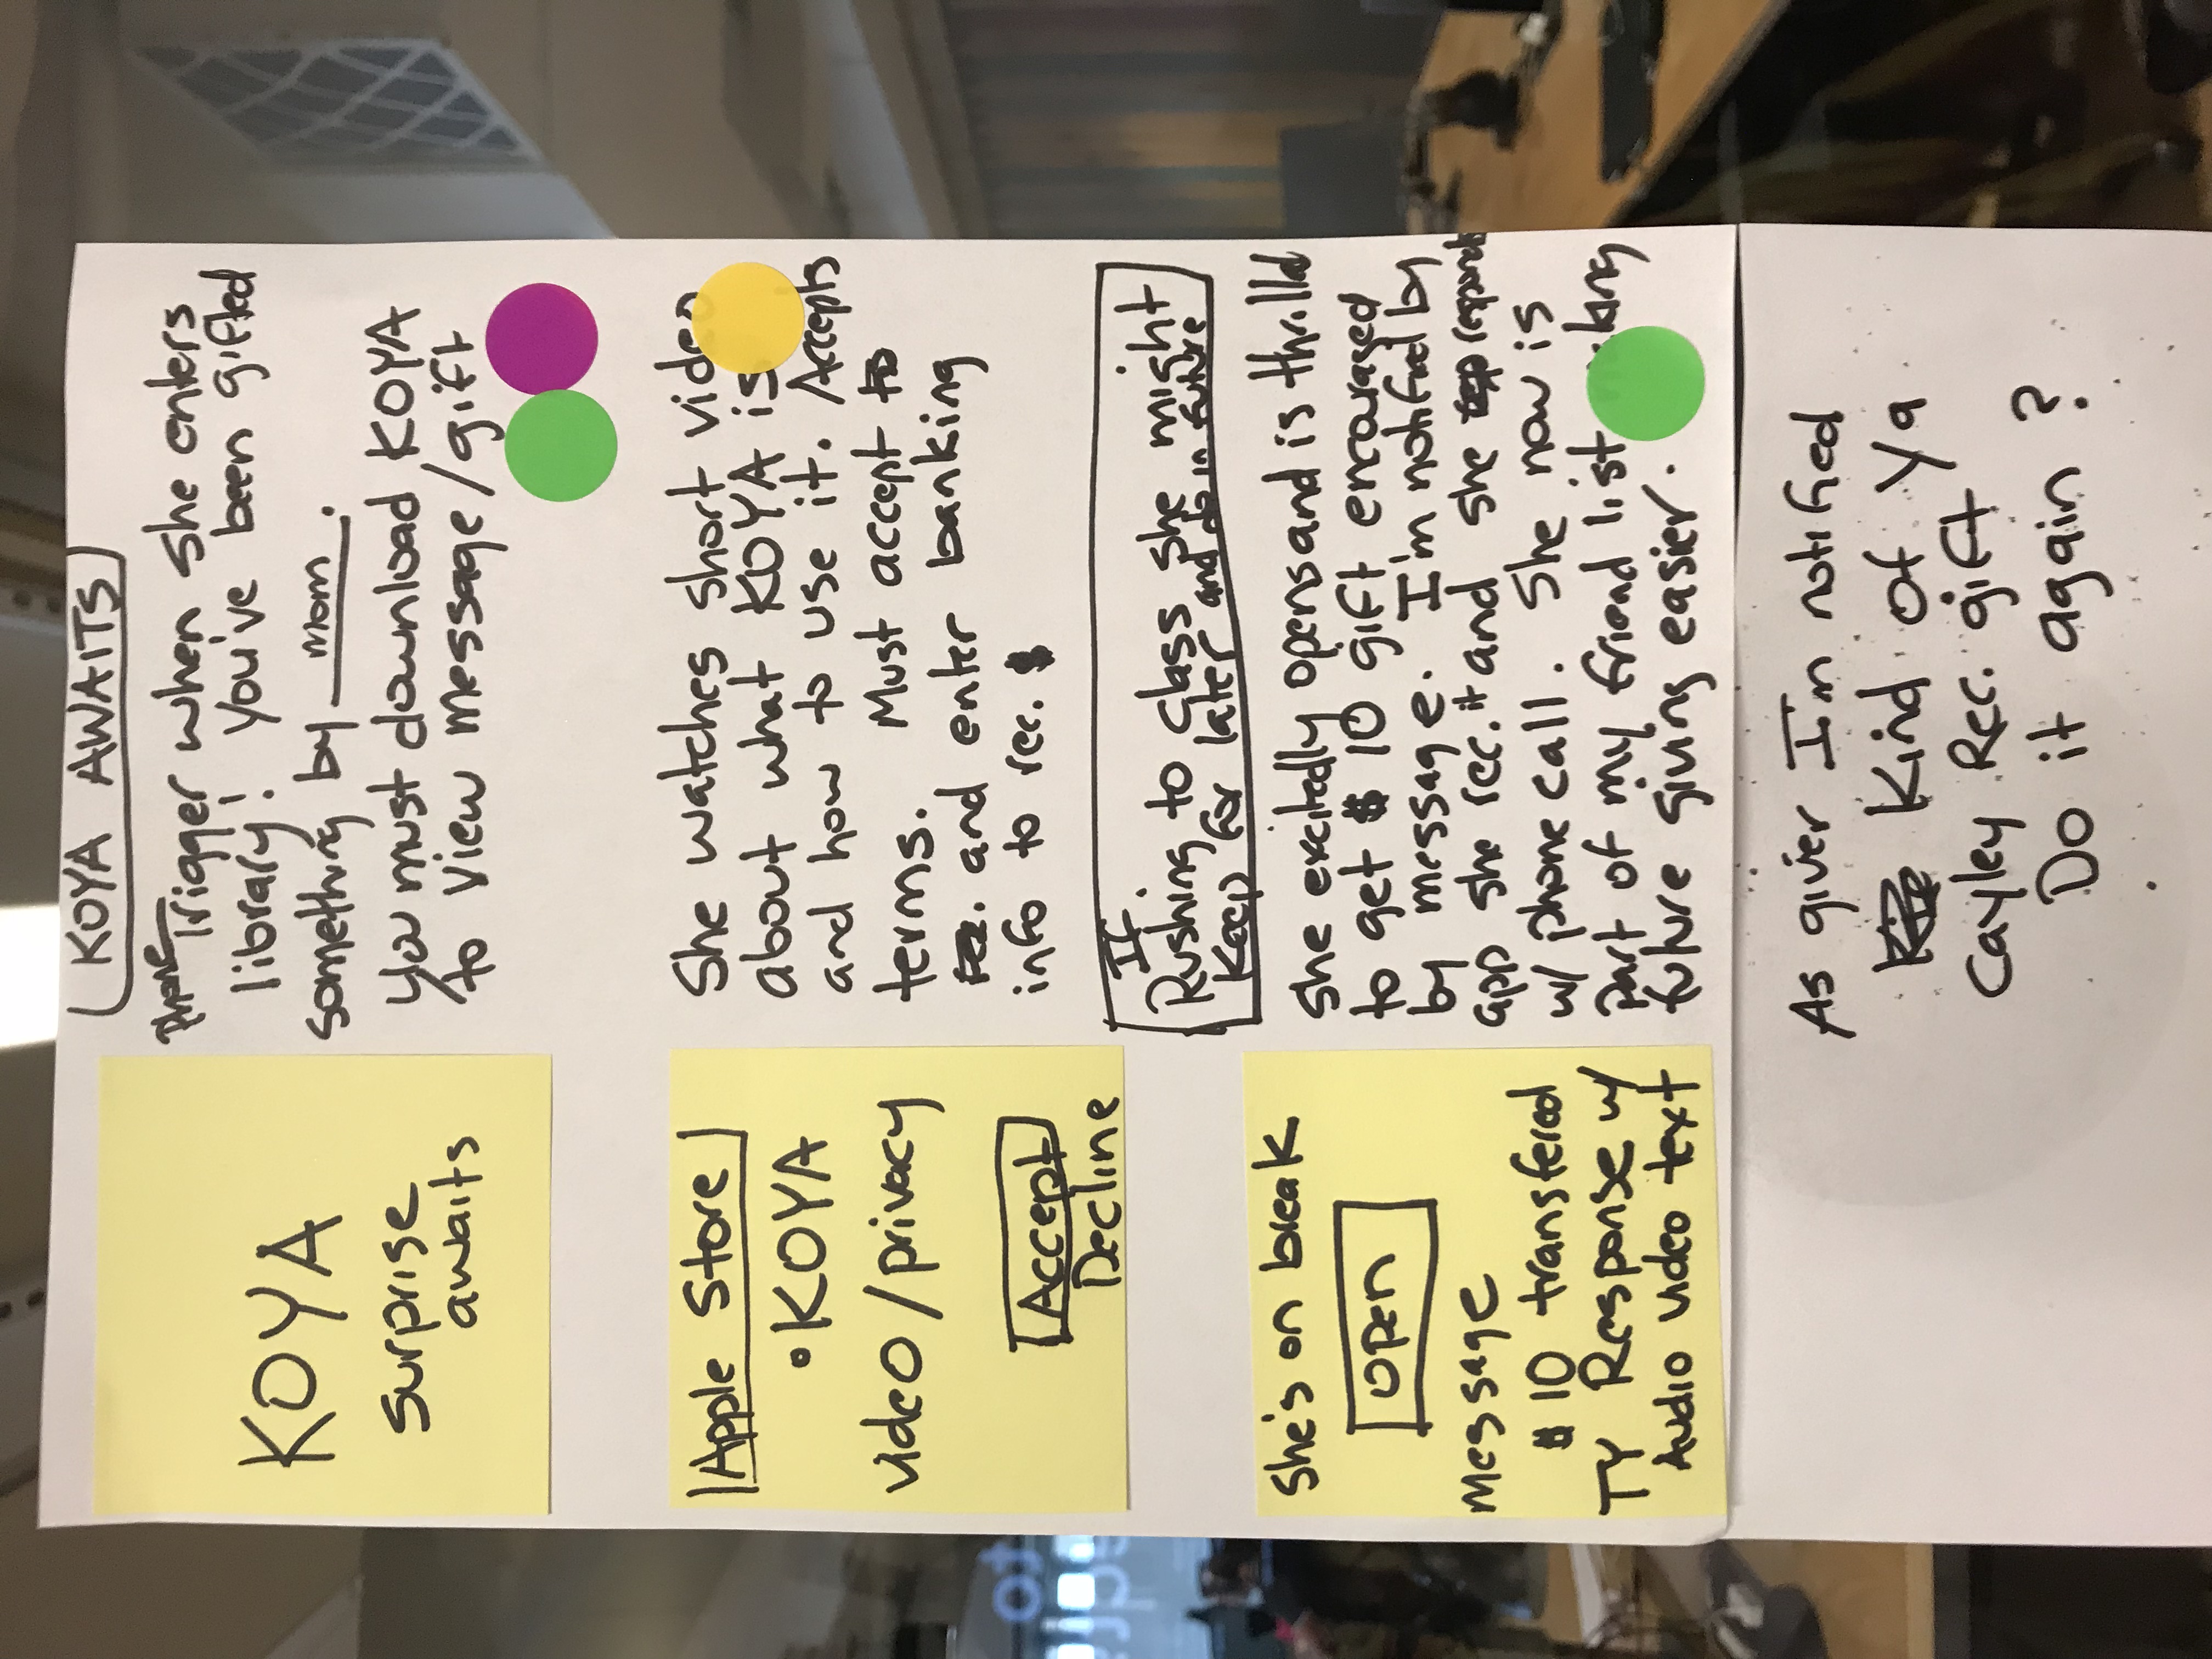 KOYA AWAITS
KOYA
surprise
awaits
Phone Trigger when she enters
library! You've been gifted
something by mom.
You must download KOYA
to view message/gift
Apple Store
•KOYA
video/privacy
Accept
Decline
She watches short video
about what KOYA is
and how to use it. Accepts
terms. Must accept to
and enter banking
info to rec. $
If
Rushing to class she might
Keep for later and do in future
She's on break
open
Message
$10 transfered
TY Response w/
Audio video text
She excitedly opens and is thrilled
to get $10 gift encouraged
by message. I'm notified by
app she rec. it and she responds
w/ phone call. She now is
part of my friend list
future giving easier.
As giver I'm notified
Kind of Ya
Cayley Rec. gift
Do it again?